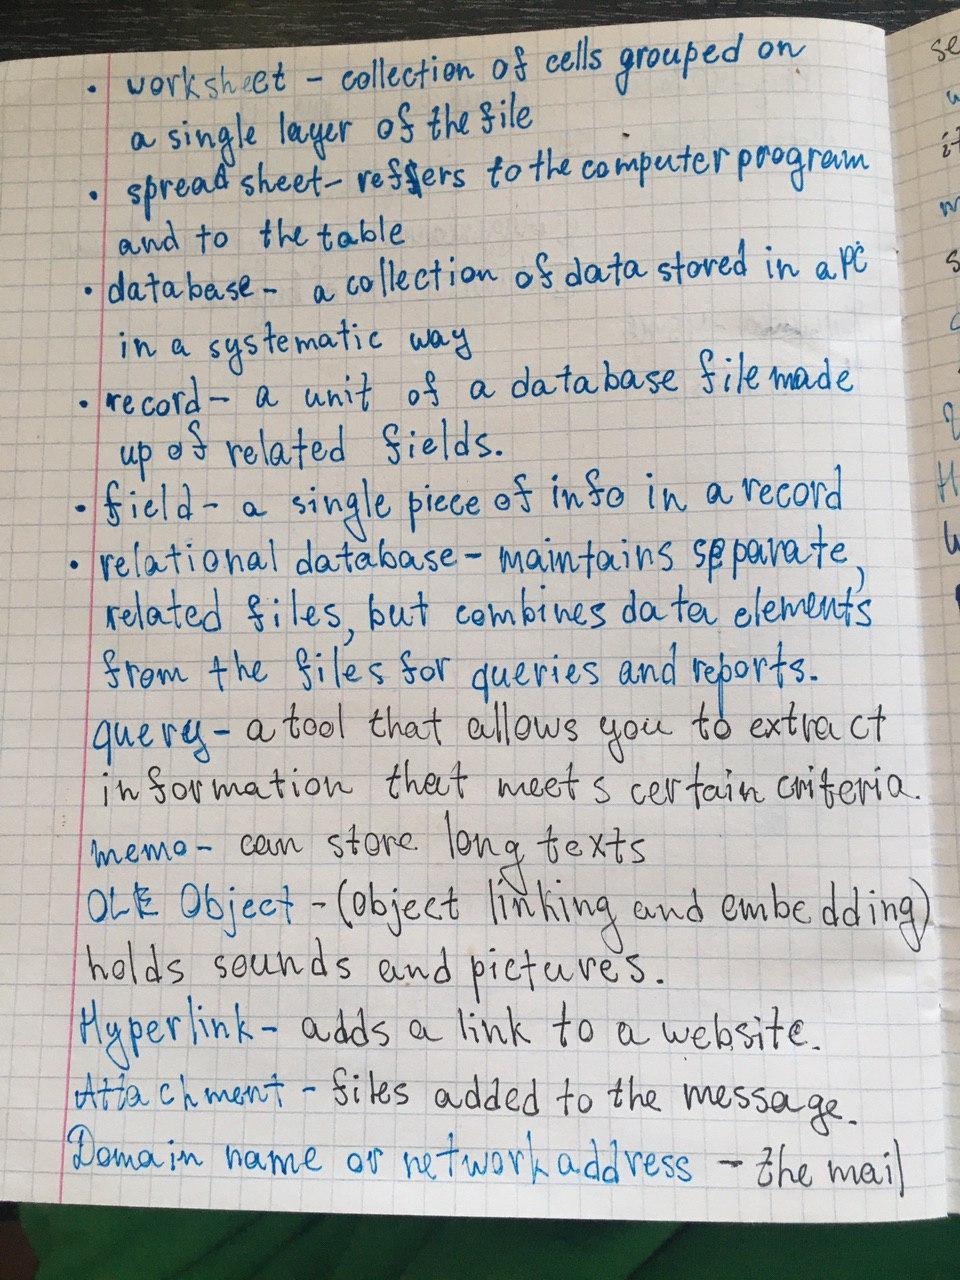 • worksheet – collection of cells grouped on
a single layer of the file
• spreadsheet – reffers to the computer program
and to the table
• database – a collection of data stored in a PC
in a systematic way
• record – a unit of a database file made
up of related fields.
• field – a single piece of info in a record
• relational database – maintains separate,
related files, but combines data elements
from the files for queries and reports.
query – a tool that allows you to extract
information that meets certain criteria.
memo – can store long texts
OLE Object – (object linking and embedding)
holds sounds and pictures.
Hyperlink – adds a link to a website.
Attachment – files added to the message.
Domain name or network address – the mail